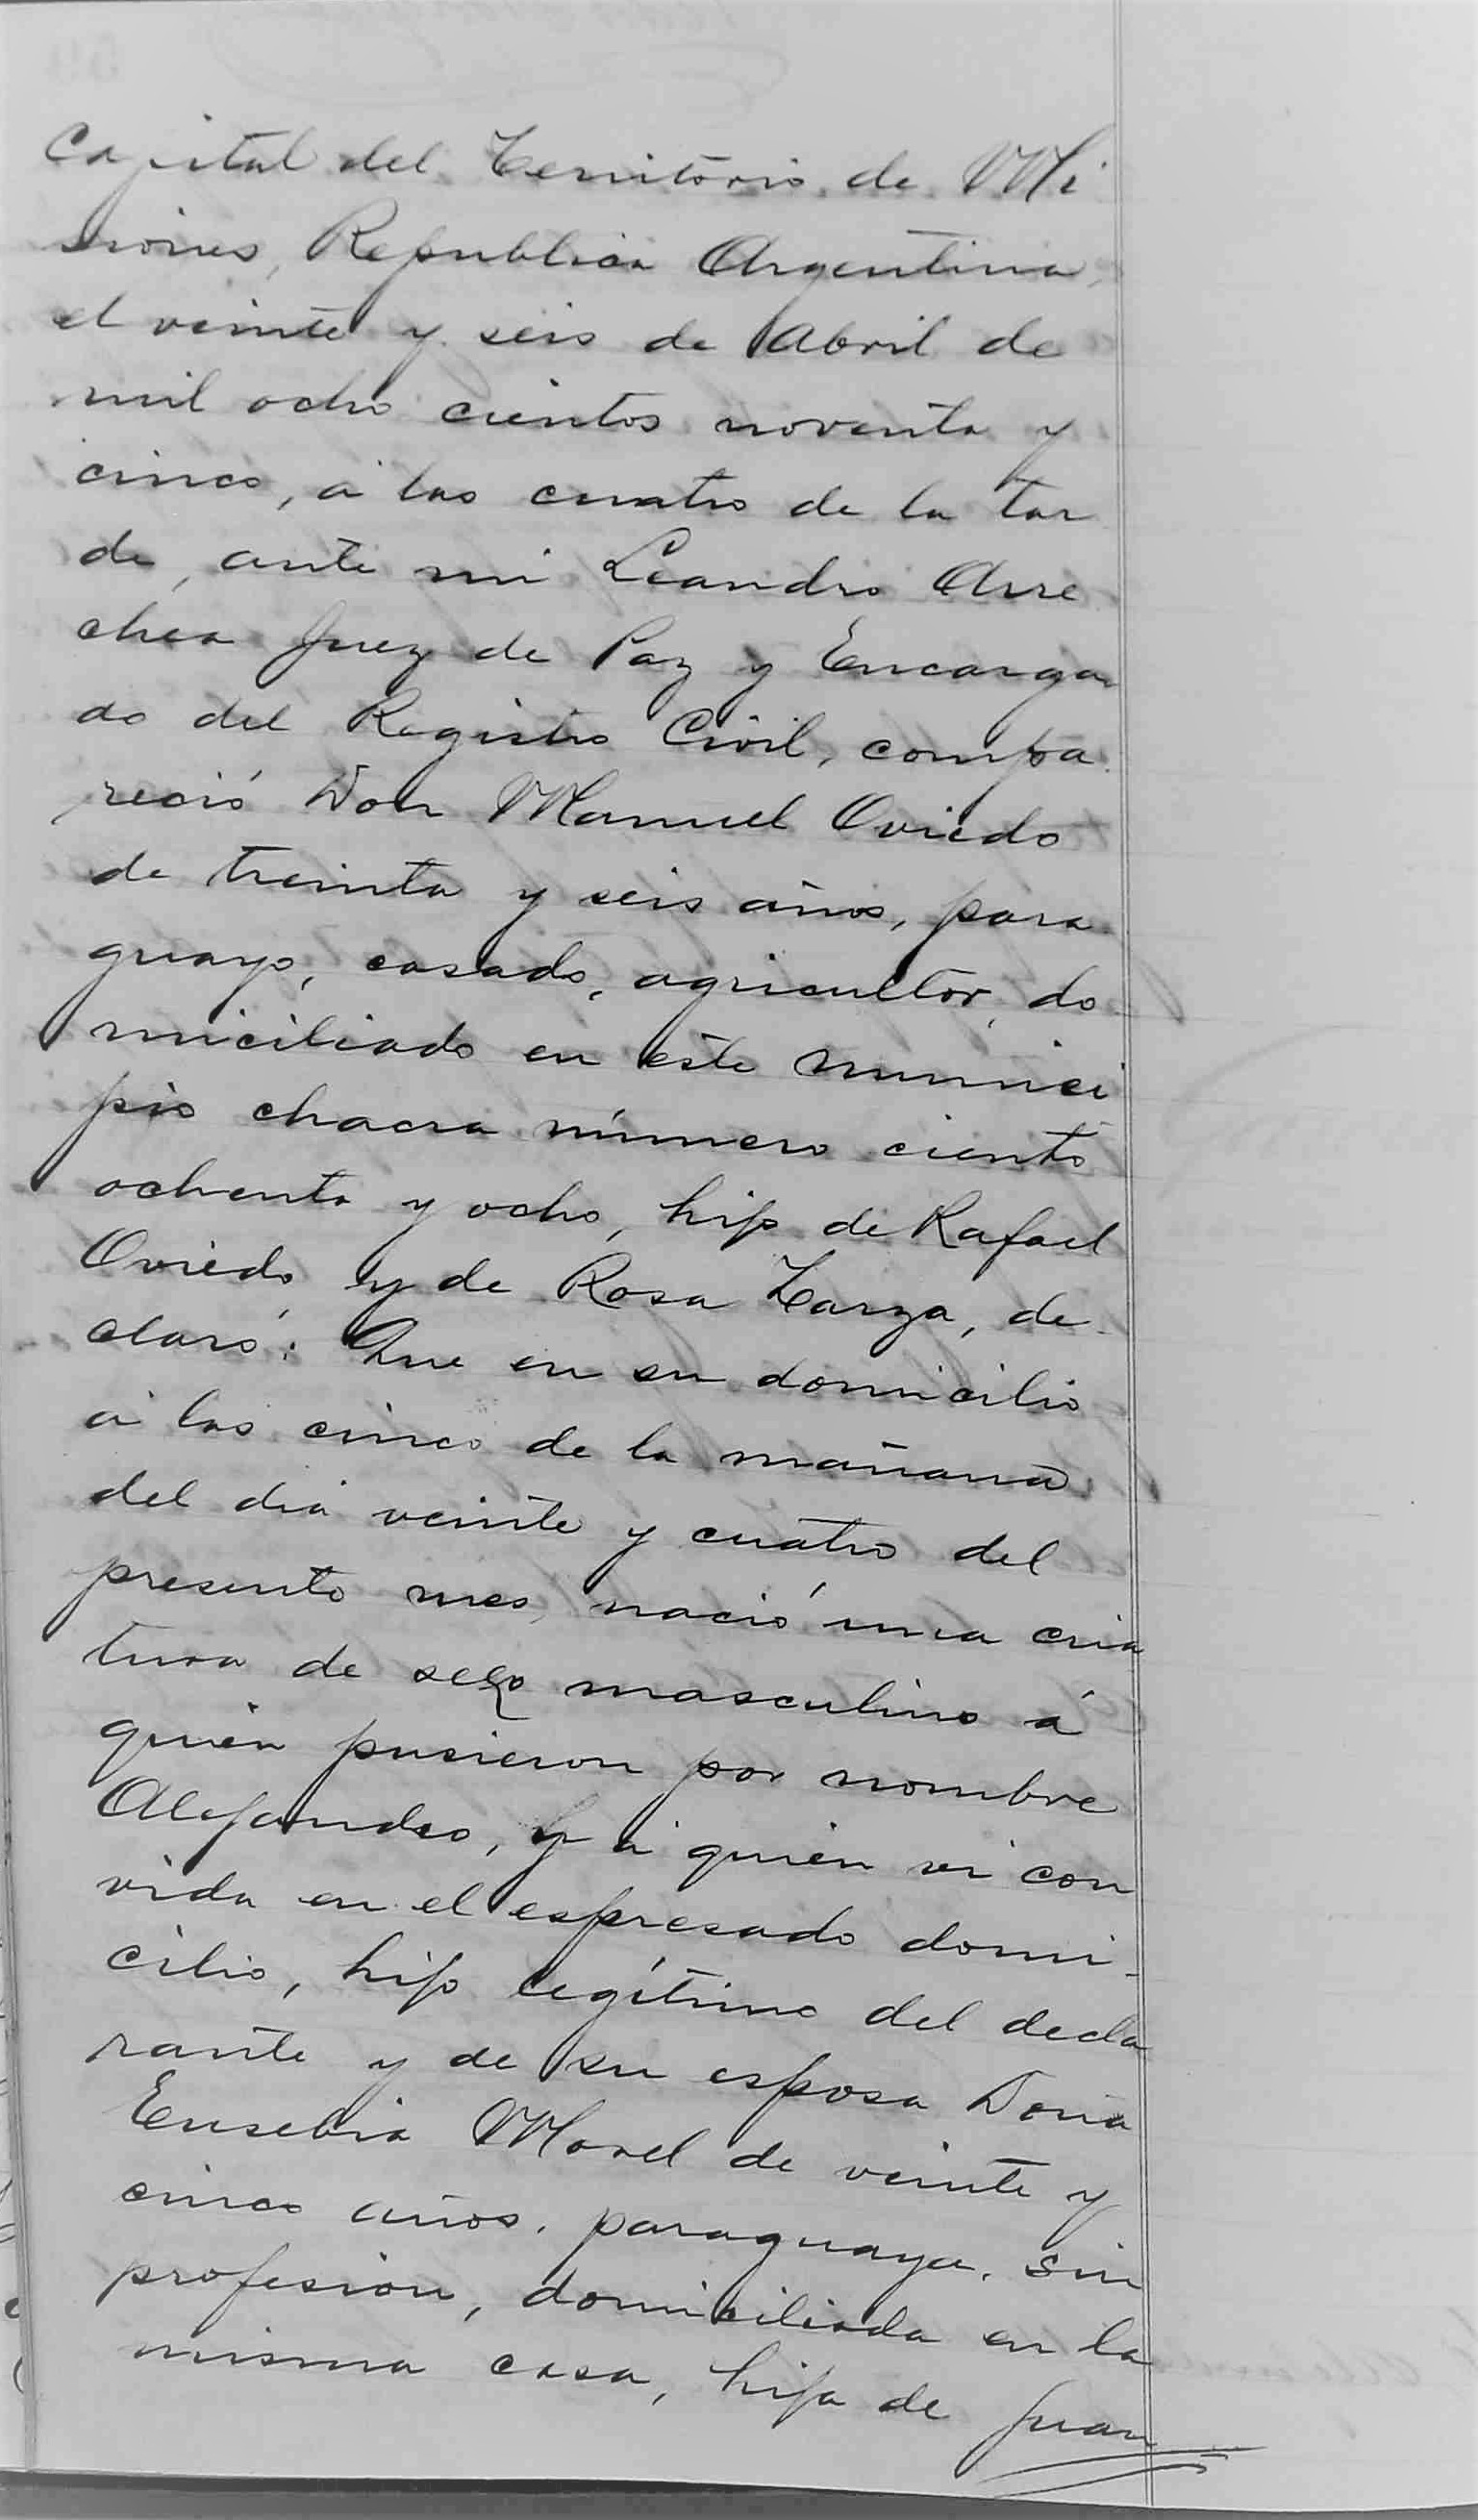 Capital del Territorio de Mi
siones, Republica Argentina,
el veinte y seis de Abril de
mil ocho cientos noventa y
cinco, á las cuatro de la tar
de, ante mi Leandro Arre
chea Juez de Paz y Encarga
do del Registro Civil, compa
reció Don Manuel Oviedo
de treinta y seis años, para
guayo, casado, agricultor, do
miciliado en este munici
pio chacra número ciento
ochenta y ocho, hijo de Rafael
Oviedo y de Rosa Zarza, de
claró: Que en su domicilio
á las cinco de la mañana
del dia veinte y cuatro del
presente mes, nació una cria
tura de sexo masculino á
quien pusieron por nombre
Alejandro, y á quien vi con
vida en el espresado domi-
cilio, hijo legítimo del decla
rante y de su esposa Doña
Eusebia Morel de veinte y
cinco años, paraguaya, sin
profesion, domiciliada en la
misma casa, hija de Juan